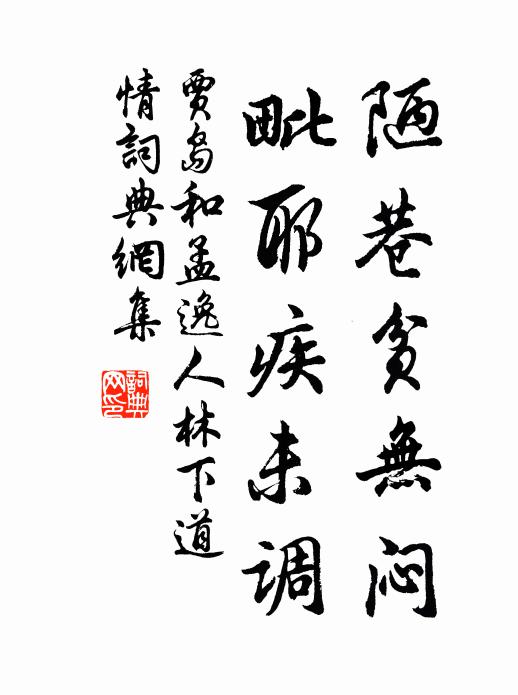 陋巷贫無闷
毗耶疾未调
賈島和孟逸人林下道
情詞典網集
詞典
网印